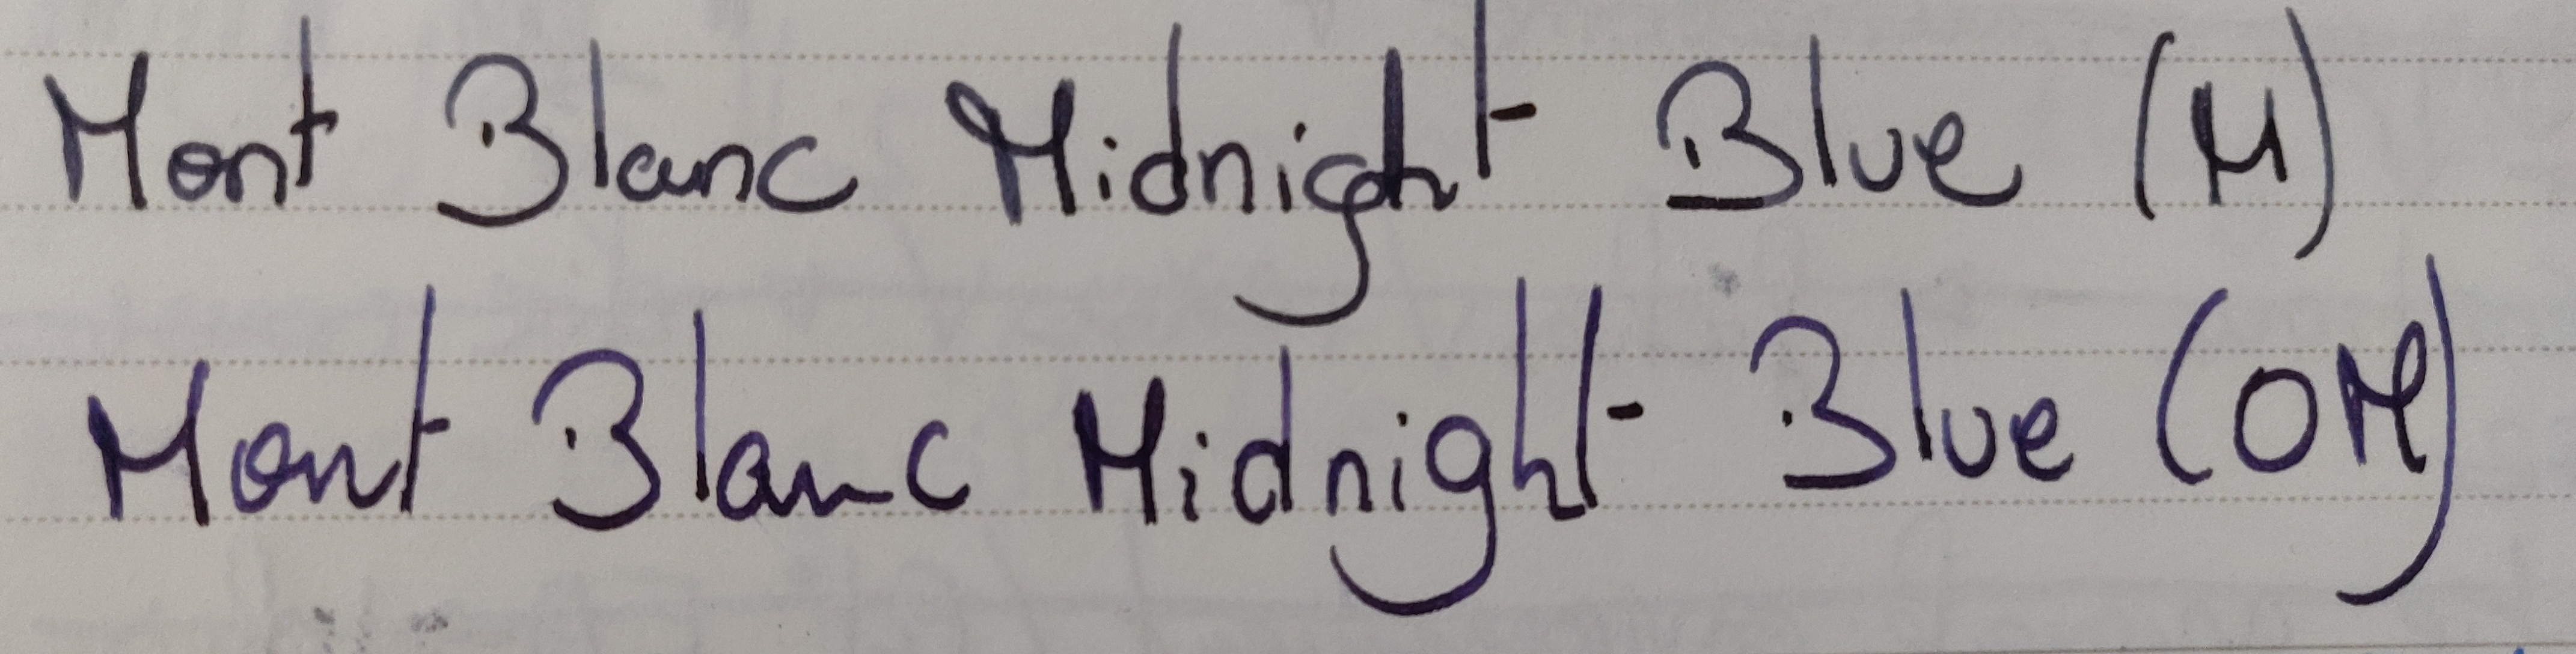 Mont Blanc Midnight Blue (M)
Mont Blanc Midnight Blue (OM)